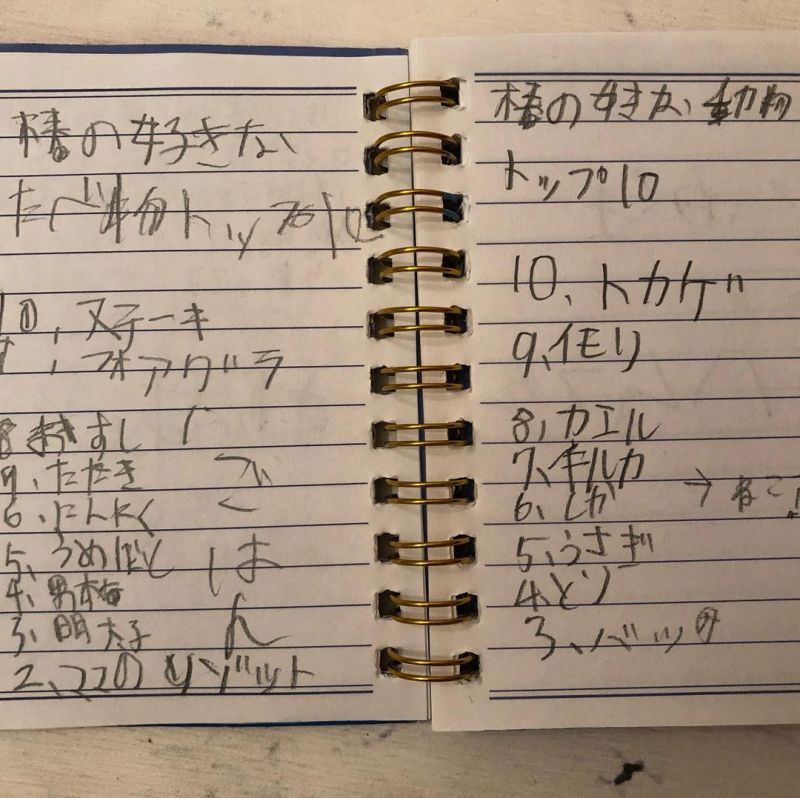 椿の好きな
たべ物トップ10
10、ステーキ
9、フォアグラ
8 すし
7、たたき
6、にんにく
5、うめぼし
4、男梅
3、明太子
2、ココのリゾット
ごはん
椿の好きな動物
トップ10
10、トカゲ
9、イモリ
8、カエル
7、イルカ
6、しか
→ねこ
5、うさぎ
4、とり
3、バッタ